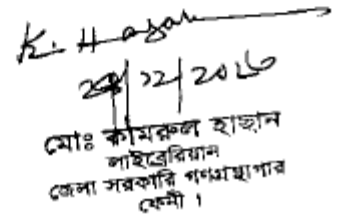 K. Hasan
২৪/১২/২০১৬
মোঃ কামরুল হাছান
লাইব্রেরিয়ান
জেলা সরকারি গণগ্রন্থাগার
ফেনী ।